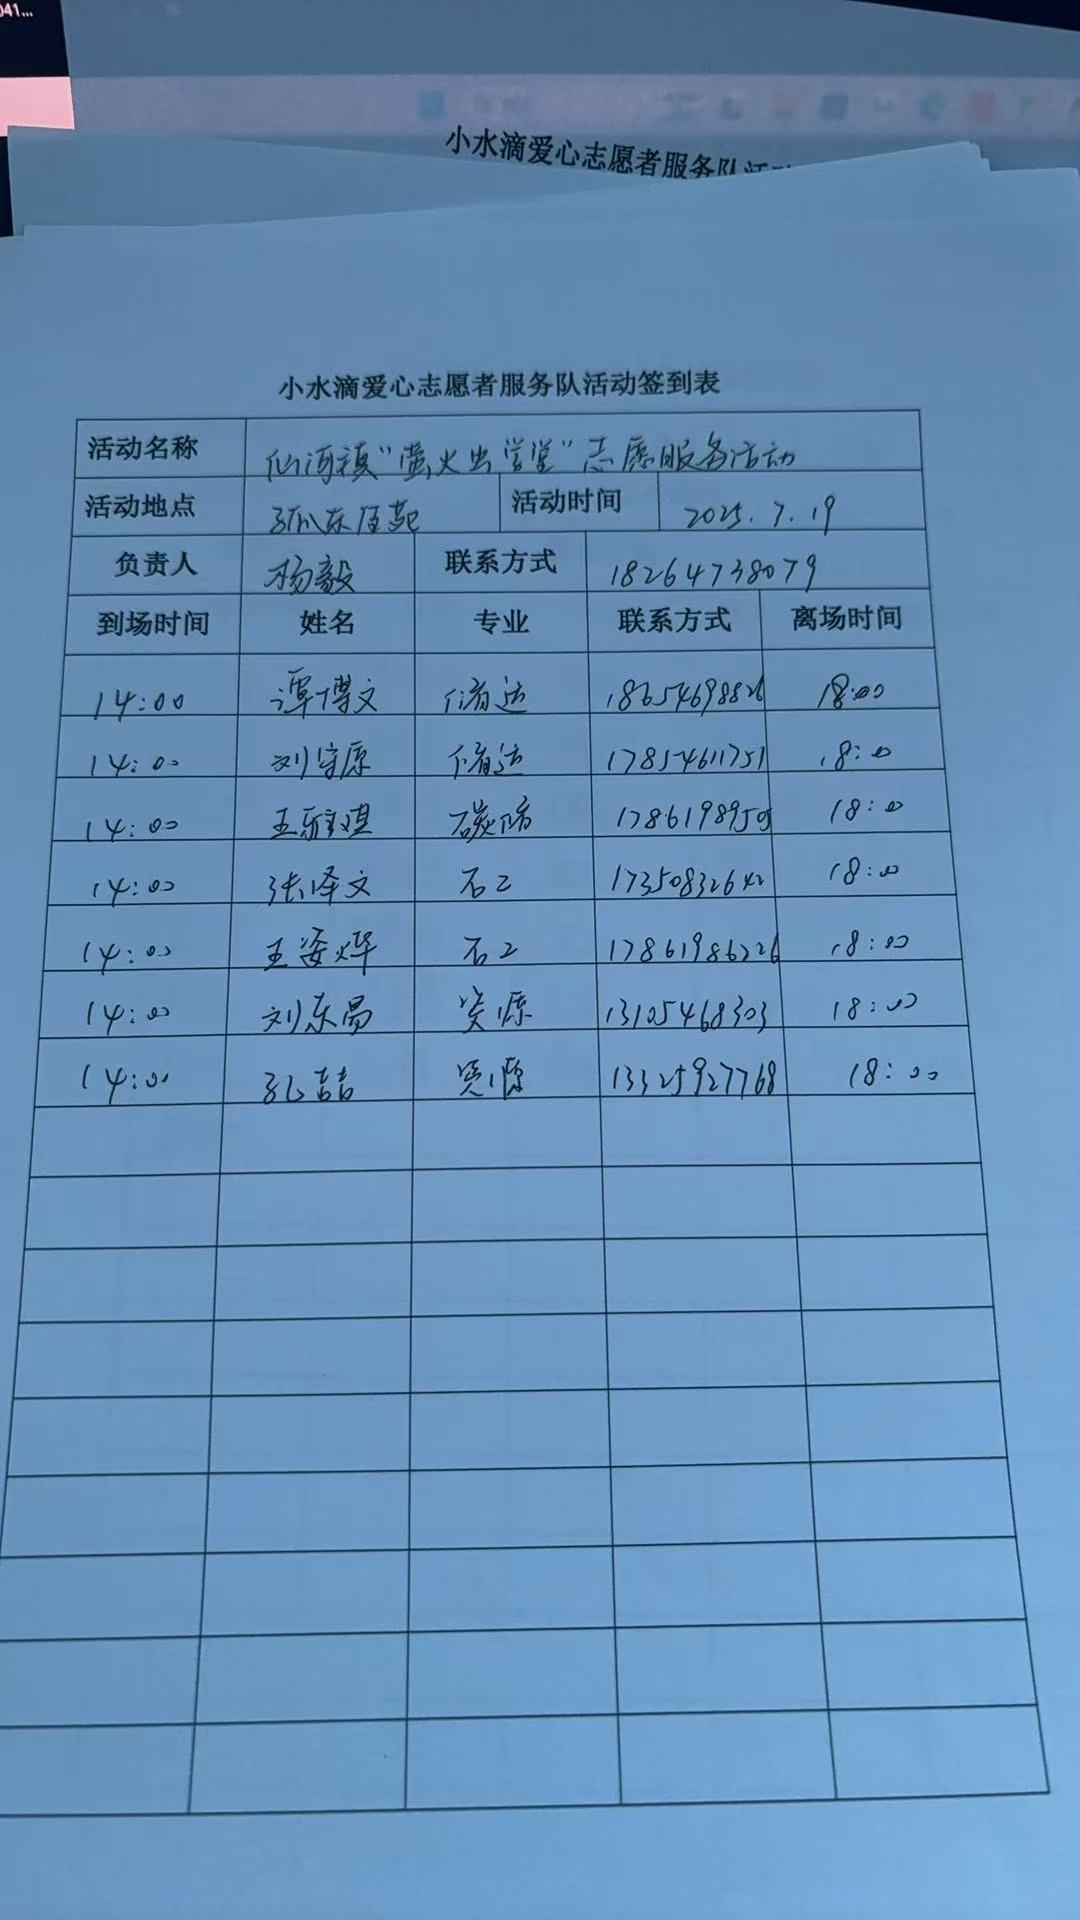 041...
小水滴爱心志愿者服务队活
小水滴爱心志愿者服务队活动签到表
活动名称 仙河镇“萤火虫学堂”志愿服务活动
活动地点 孤东居苑 活动时间 2025.7.19
负责人 杨毅 联系方式 18264738079
到场时间 姓名 专业 联系方式 离场时间
14:00 谭博文 储运 18654698826 18:00
14:00 刘守原 储运 17854611751 18:00
14:00 碳储 17861989505 18:00
14:00 张泽文 石工 17350832642 18:00
14:00 王姿烨 石工 17861986226 18:00
14:00 刘东昌 资源 13105468303 18:00
14:00 孔喆 资源 13325927768 18:00